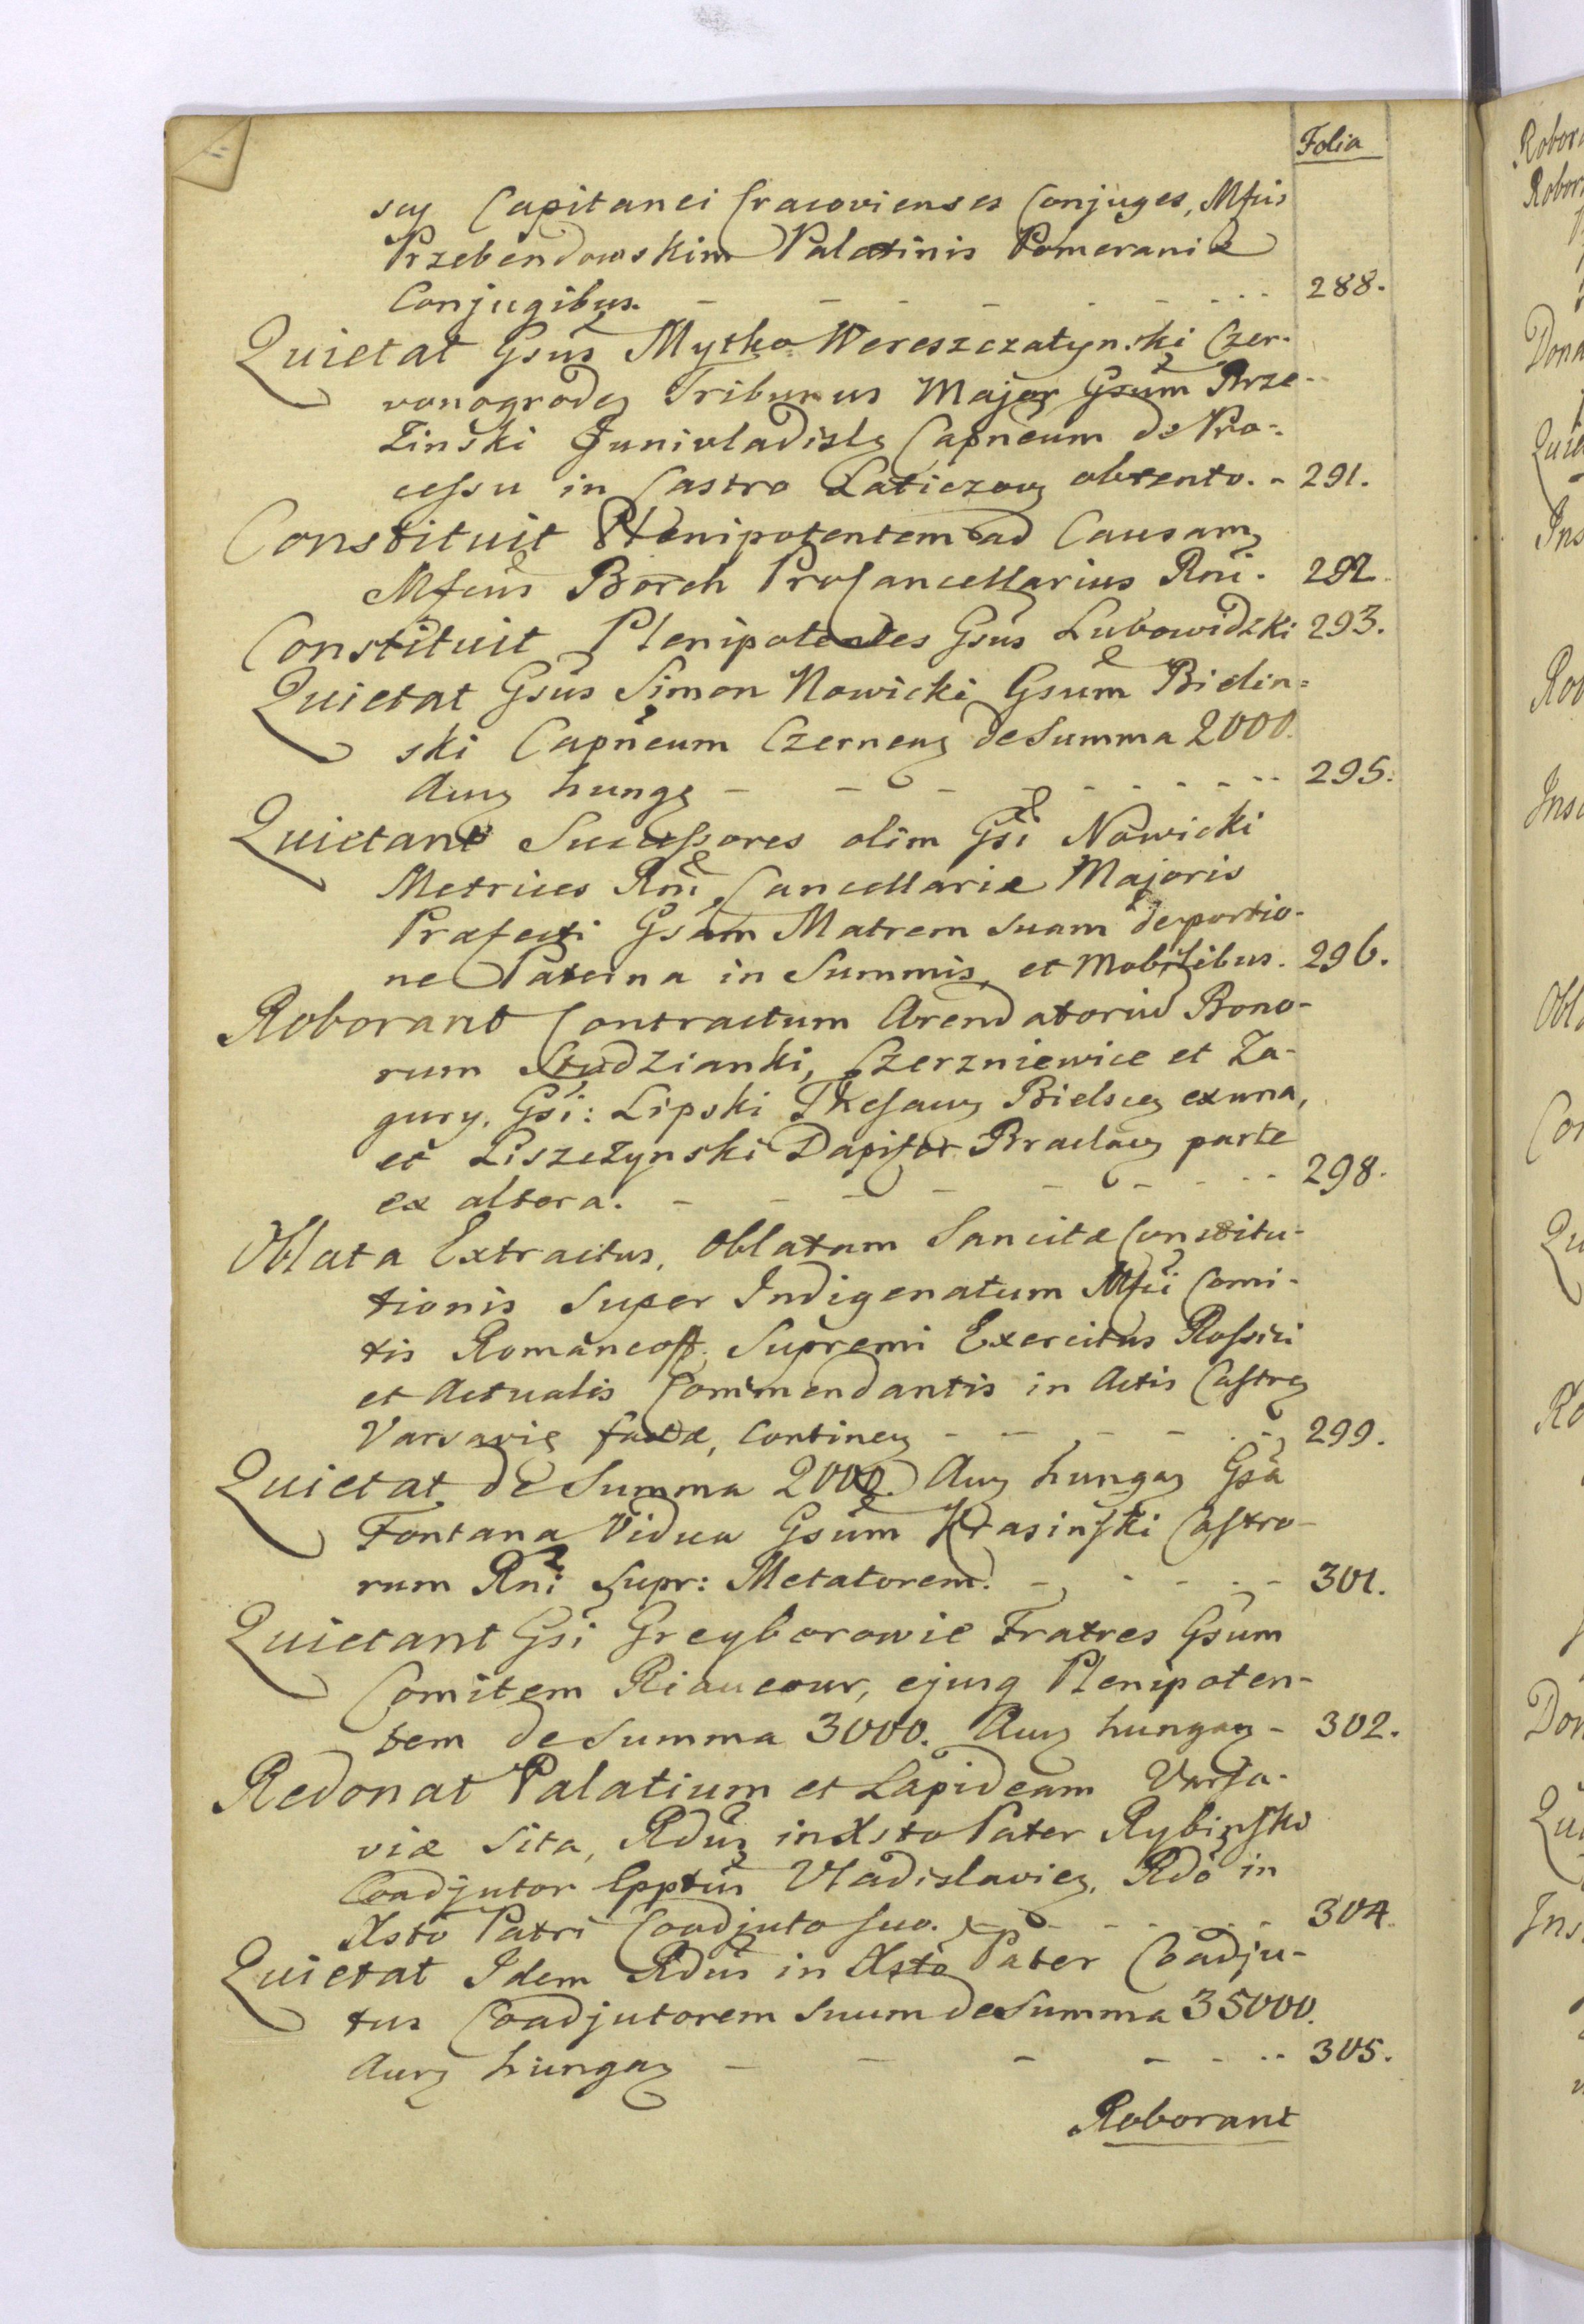 Folia
scy Capitanei Cracovienses Conjuges, Mfcis
Przebendowskim Palatinis Pomeraniæ
Conjugibus. - - - - - - - - 288.
Quietat Gsus Mytko Wereszczatynski Czer-
vonogrodcy Tribunus Major Gsum Brze-
zinski Junivladislz Capneum de Pro-
cessu in Castro Laticzovz obtento. - 291.
Constituit Plenipotentem ad Causam
Mfcus Borch ProCancellarius Rni. 292.
Constituit Plenipotentes Gsus Lubowidzki 293.
Quietat Gsus Simon Nowicki Gsum Bielin=
ski Capneum Czernenz de Summa 2000.
Aurz hungz - - - - - - - - 295.
Quietant Successores olim Gsi Nowicki
Metrices Rni Cancellariæ Majoris
Præfecti Gsam Matrem suam de portio-
ne Paterna in Summis, et Mobilibus. 296.
Roborant Contractum Arendatoriu Bono-
rum Studzianki, Czerzniewice et Za-
gury. Gsi: Lipski Thesaurz Bielscz ex una,
et Liszczynski Dapifer Braclavz parte
ex altera. - - - - - - - - 298.
Oblata Extractus, Oblatam Sancitæ Constitu-
tionis Super Indigenatum Mfci Comi-
tis Romancoff. Supremi Exercitus Rossici
et Actualis Commendantis in Actis Castrz
Varsavię factæ, Continenz - - - - - - 299.
Quietat de Summa 2000. Aurz hungaz Gsa
Fontana Vidua Gsum Krasinski Castro-
rum Rni Supr: Metatorem. - - - - - - 301.
Quietant Gsi Greyborowie Fratres Gsum
Comitem Riaucour, ejusq Plenipoten-
tem de Summa 3000. Aurz hungarz - 302.
Redonat Palatium et Lapideam Varsa-
viæ Sita, Rdus in Xsto Pater Rybinski
Coadjutor Epptus Vladislaviez. Rdo in
Xsto Patri Coadjuto suo. - - - - - - 304.
Quietat Idem Rdus in Xsto Pater Coadju-
tus Coadjutorem suum de Summa 35000.
Aurz hungaz - - - - - - 305.
Roborant